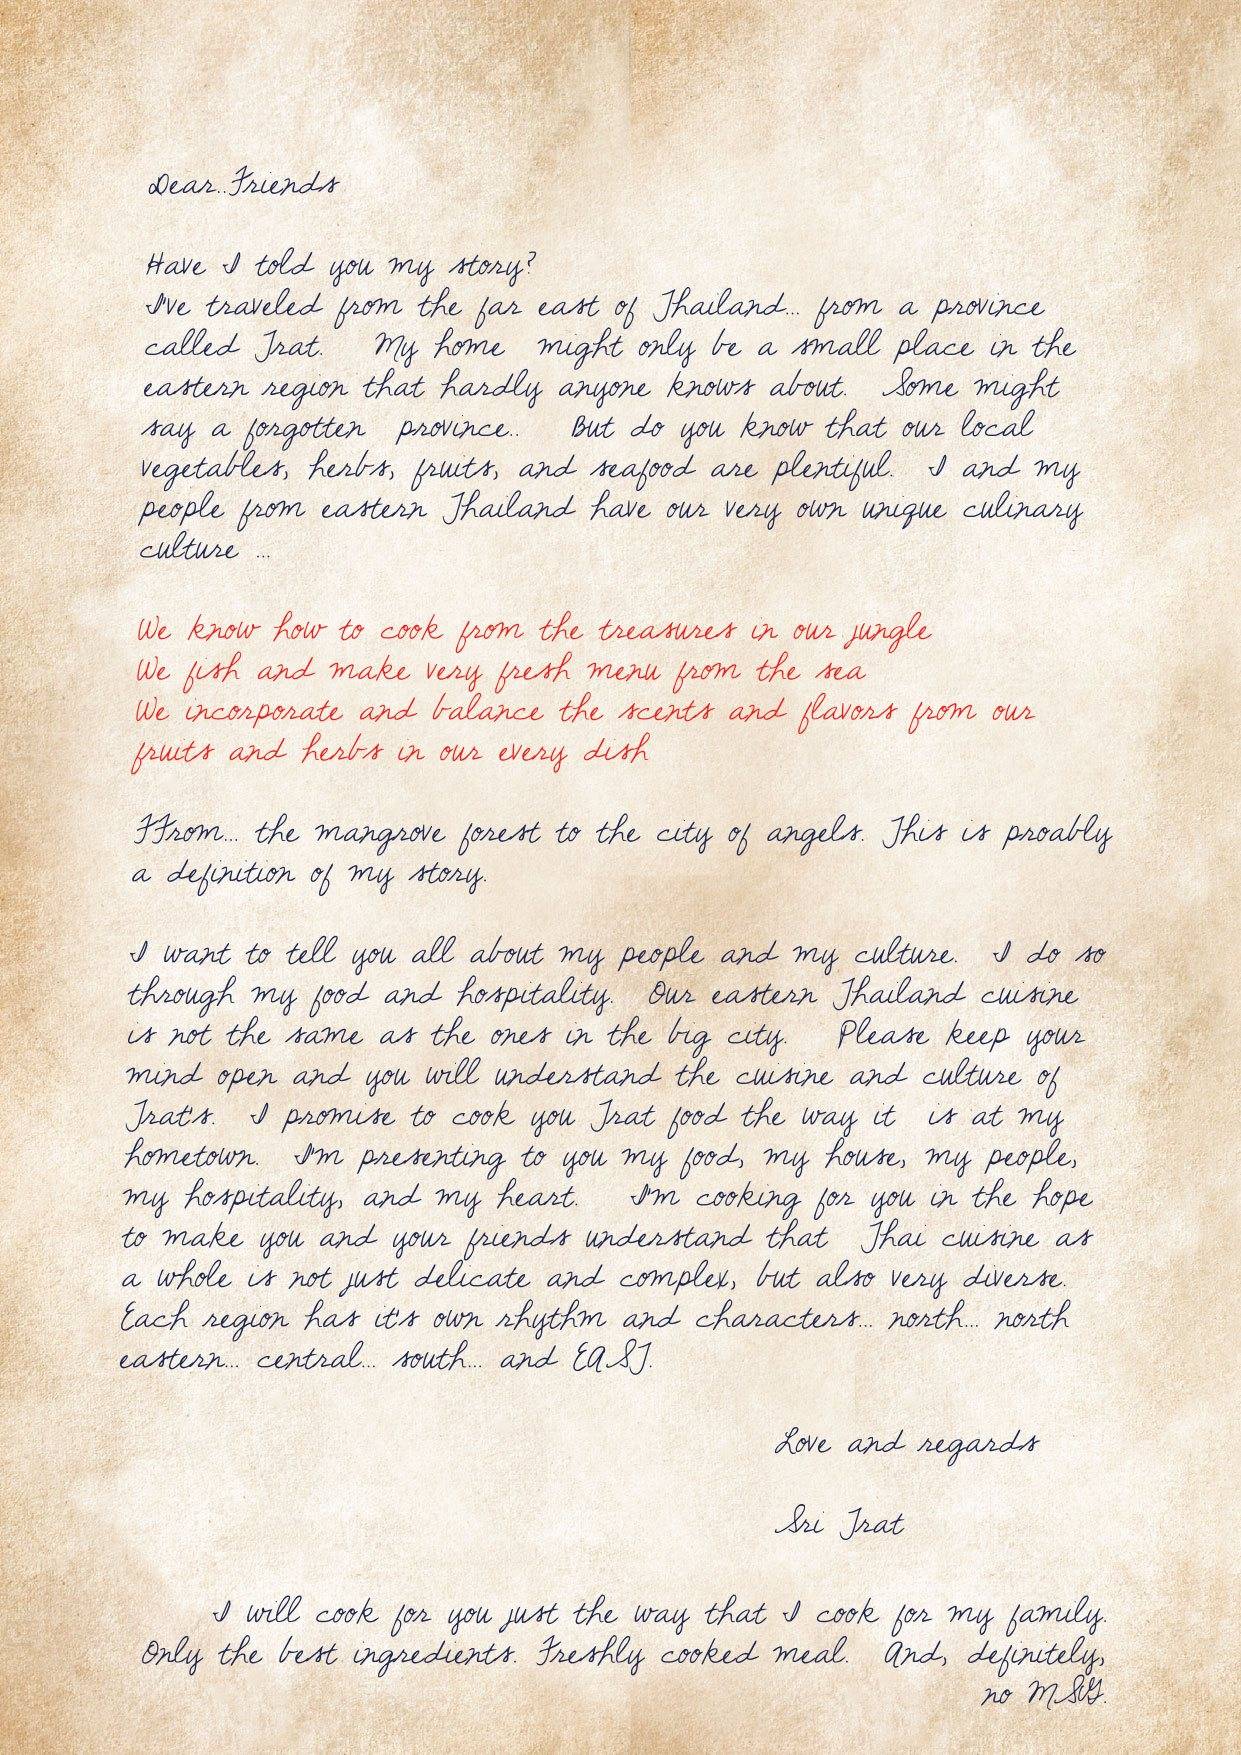 Dear..Friends
Have I told you my story?
I've traveled from the far east of Thailand... from a province
called Trat. My home might only be a small place in the
eastern region that hardly anyone knows about. Some might
say a forgotten province.. But do you know that our local
vegetables, herbs, fruits, and seafood are plentiful. I and my
people from eastern Thailand have our very own unique culinary
culture ...
We know how to cook from the treasures in our jungle
We fish and make very fresh menu from the sea
We incorporate and balance the scents and flavors from our
fruits and herbs in our every dish
FFrom... the mangrove forest to the city of angels. This is proably
a definition of my story.
I want to tell you all about my people and my culture. I do so
through my food and hospitality. Our eastern Thailand cuisine
is not the same as the ones in the big city. Please keep your
mind open and you will understand the cuisine and culture of
Trat's. I promise to cook you Trat food the way it is at my
hometown. I'm presenting to you my food, my house, my people,
my hospitality, and my heart. I'm cooking for you in the hope
to make you and your friends understand that Thai cuisine as
a whole is not just delicate and complex, but also very diverse.
Each region has it's own rhythm and characters... north... north
eastern... central... south... and EAST.
Love and regards
Sri Trat
I will cook for you just the way that I cook for my family.
Only the best ingredients. Freshly cooked meal. And, definitely,
no MSG.